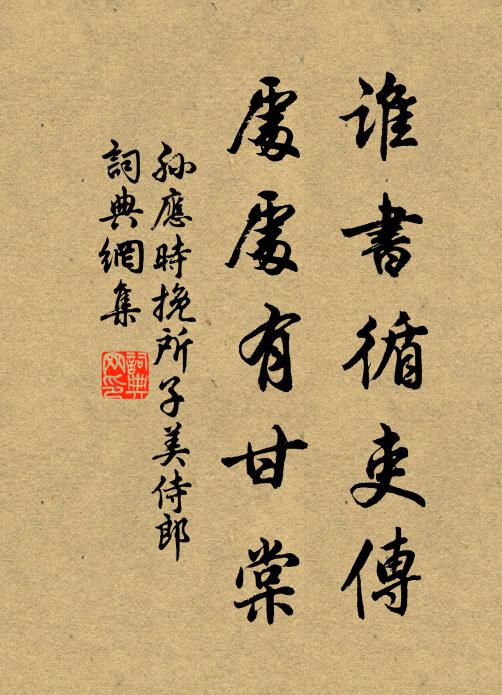 誰書循吏傳
處處有甘棠
孫應時挽所子美侍郎
詞典網集
詞典网印